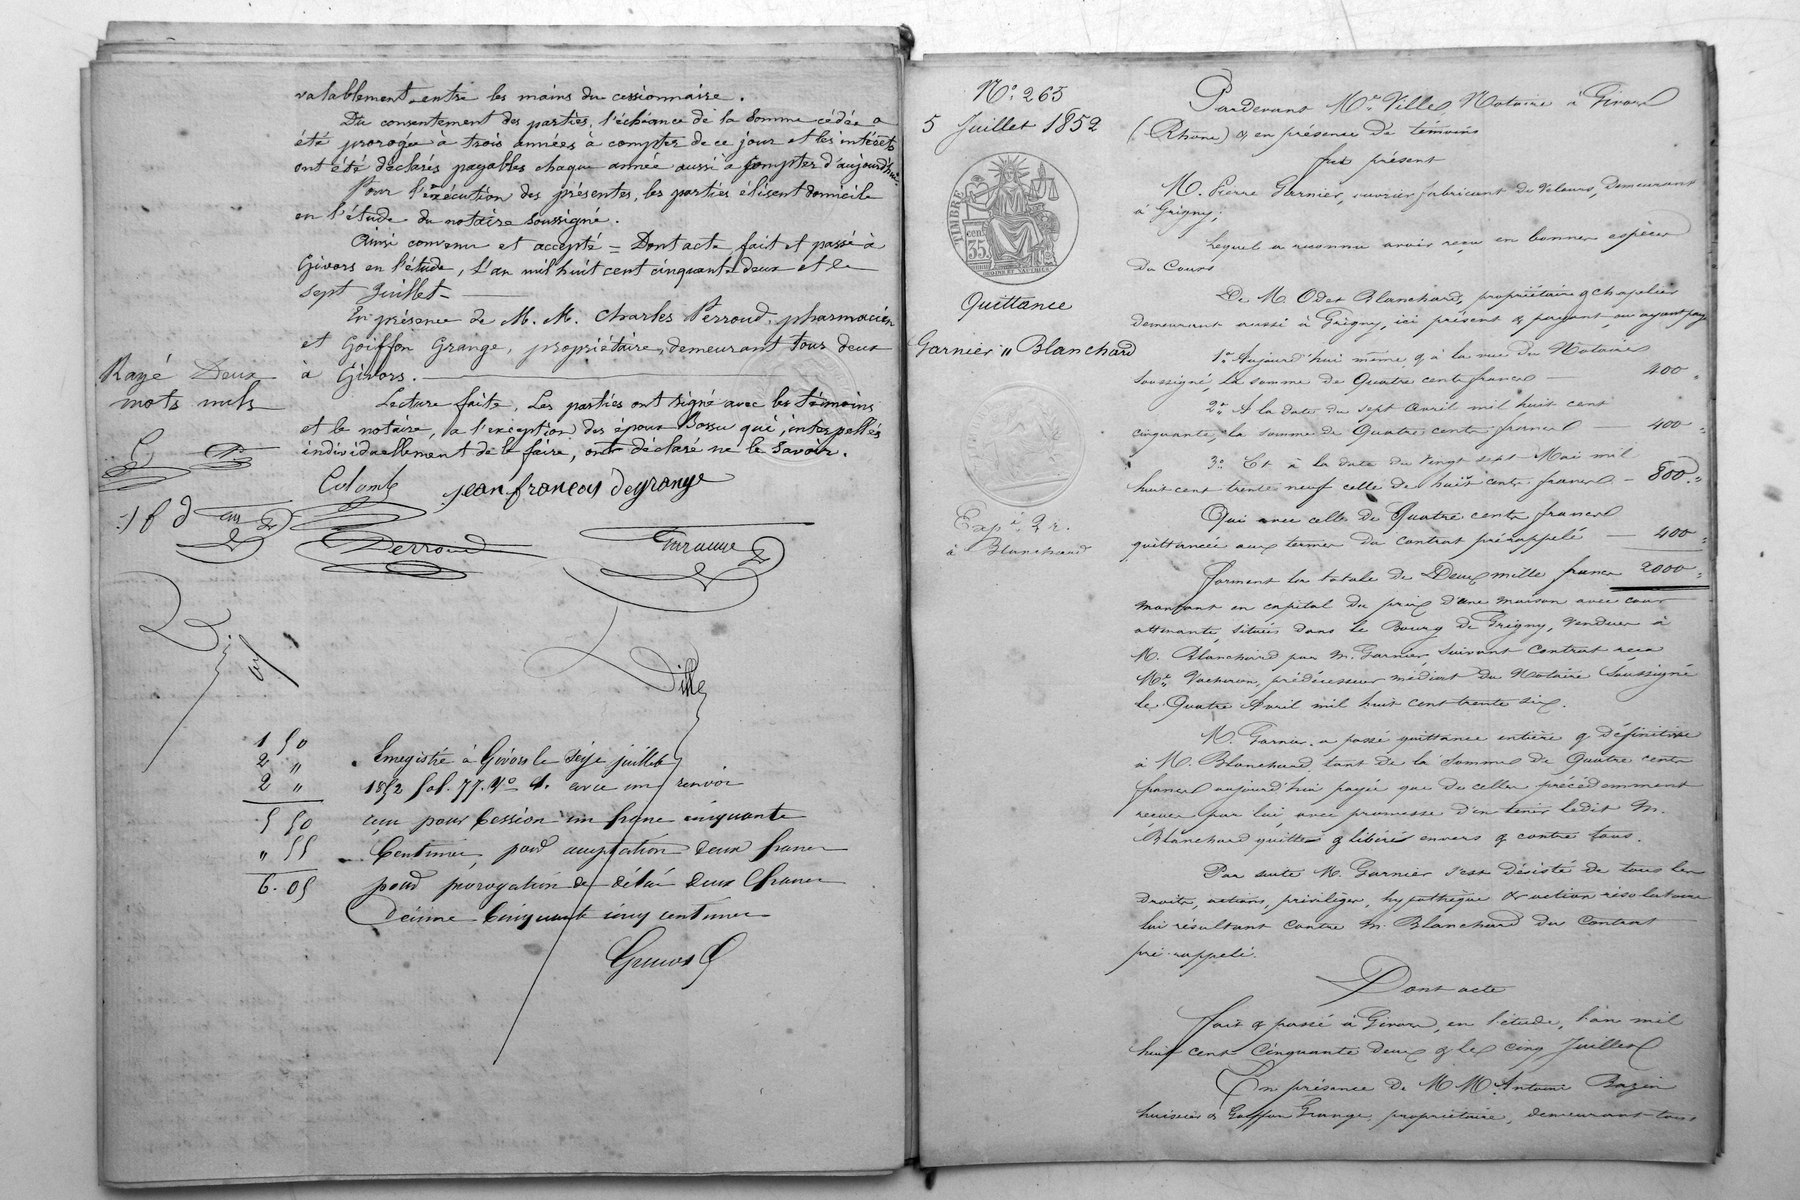 valablement entre les mains du cessionnaire.
Du consentement des parties, l'échéance de la somme cédée a
été prorogée à trois années à compter de ce jour et les intérêts
ont été déclarés payables chaque année aussi à compter d'aujourd'hui.
Pour l'exécution des présentes, les parties élisent domicile
en l'étude du notaire soussigné.
Ainsi convenu et accepté = Dont acte fait et passé à
Givors en l'étude, l'an mil huit cent cinquante deux et le
sept Juillet
En présence de M. M. Charles Perroud, pharmacien
et Goiffon Grange, propriétaire, demeurant tous deux
à Givors.
Lecture faite, Les parties ont signé avec les témoins
et le notaire, à l'exception des époux Bossu qui, interpellés
individuellement de le faire, ont déclaré ne le savoir.
Rayé Deux
mots nuls
Colomb
jean françois degrange
Perroud
Grange
Ville
1 50
2 "
2 "
5 50
" 55
6.05
Enregistré à Givors le seize juillet
1852 fol. 77. Vo avec un renvoi
reçu pour Cession un franc cinquante
Centimes, pour acceptation deux francs
pour prorogation de délai deux francs
Décime Cinquante cinq centimes
No. 265
5 Juillet 1852
TIMBRE
cent.
35.
Quittance
Garnier " Blanchard
Expé. 2 r.
à Blanchard
Pardevant Me. Ville Notaire à Givors
(Rhône) & en présence de témoins
fut présent
M. Pierre Garnier, ouvrier fabricant de Velours, demeurant
à Grigny;
Lequel a reconnu avoir reçu en bonnes espèces
du Cours
De M. Odet Blanchard, propriétaire & chapelier
demeurant aussi à Grigny, ici présent & payant, ou ayant payé
1o. Aujourd'hui même, & à la vue du Notaire
soussigné, la somme de Quatre cents francs — 400 "
2o. A la date du sept avril mil huit cent
cinquante, la somme de Quatre cents francs — 400 "
3o. Et à la date du vingt sept Mai mil
huit cent trente neuf celle de huit cents francs — 800 "
Qui avec celle de Quatre cents francs
quittancée aux termes du contrat prérappelé — 400 "
forment la totale de Deux mille francs 2000 "
montant en capital du prix d'une maison avec cour
attenante, situées dans le Bourg de Grigny, Vendues à
M. Blanchard par M. Garnier, suivant contrat reçu
Me. Vacheron, prédécesseur médiat du Notaire soussigné
le Quatre Avril mil huit cent trente six.
M. Garnier a passé quittance entière & définitive
à M. Blanchard, tant de la somme de Quatre cents
francs aujourd'hui payée que de celles précédemment
reçues par lui avec promesse d'en tenir ledit M.
Blanchard quitte & libéré envers & contre tous.
Par suite M. Garnier s'est désisté de tous les
droits, actions, privilèges, hypothèque & action résolutoire
lui résultant contre M. Blanchard du Contrat
pré-rappelé.
Dont acte
Fait & passé à Givors, en l'étude, l'an mil
huit cent Cinquante deux & le cinq Juillet
En présence de M M. Antoine Bazin
huissier & Goiffon Grange, propriétaire, demeurant tous